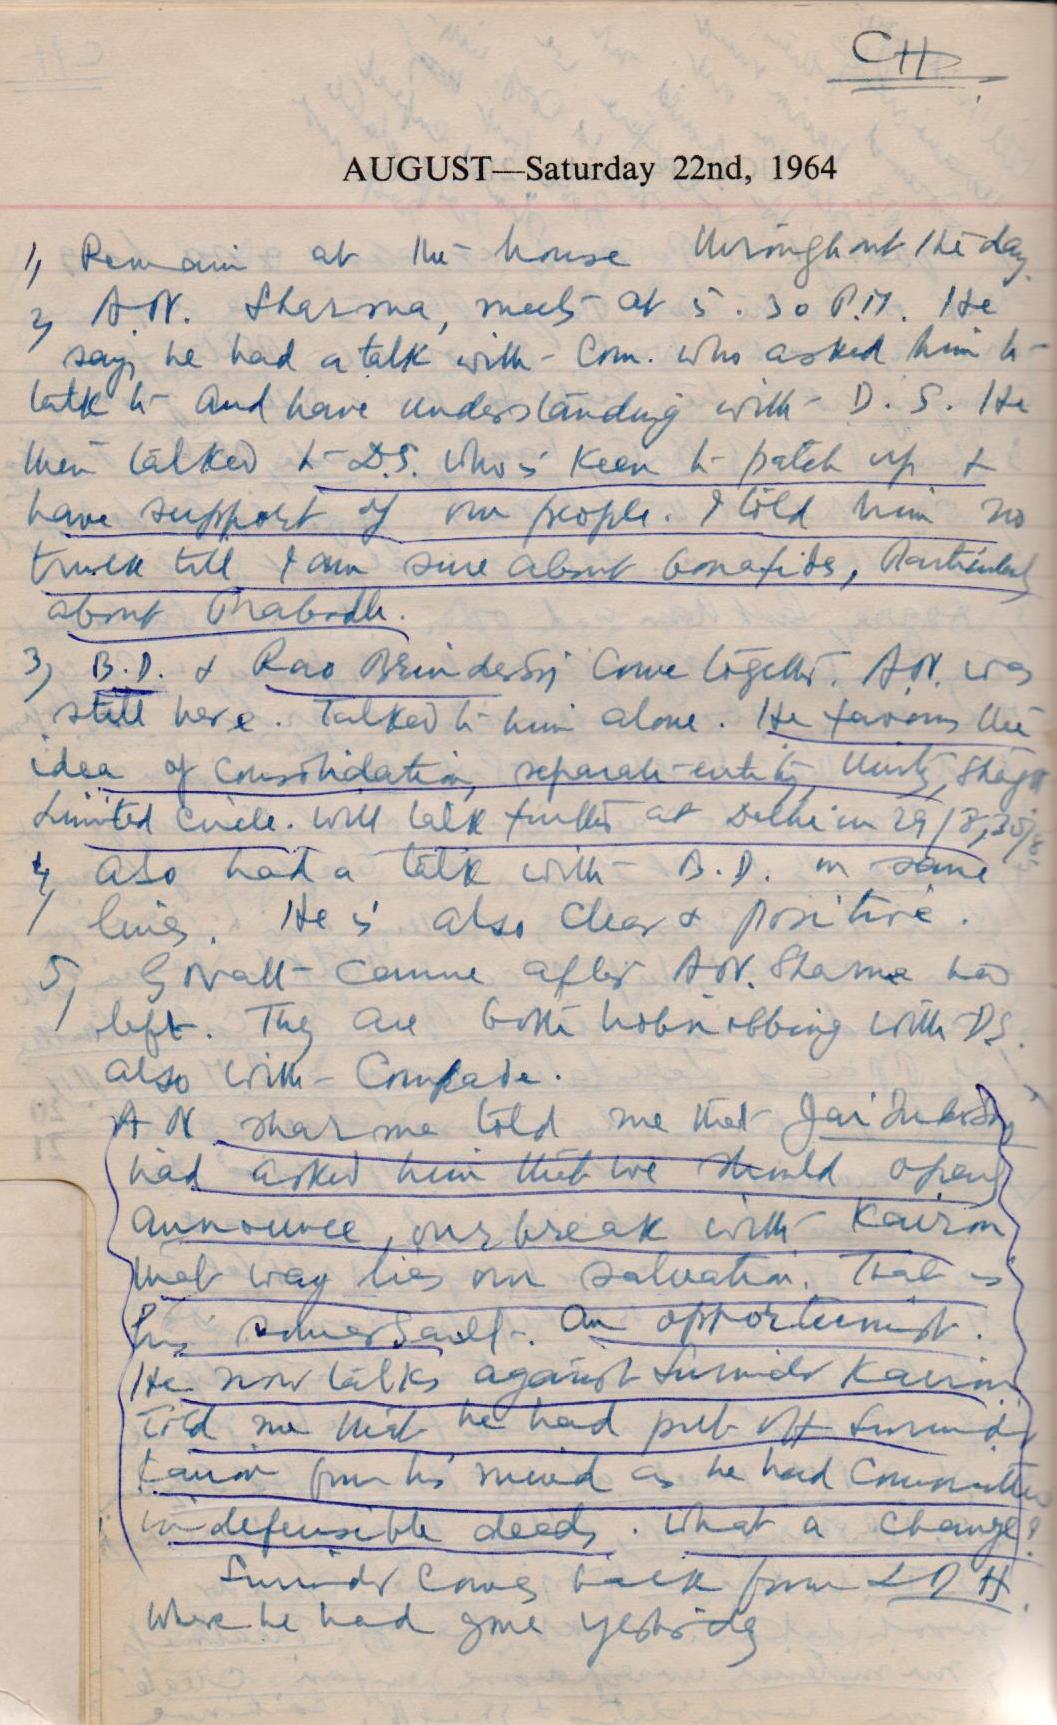 CH
AUGUST—Saturday 22nd, 1964
1, Remain at the house throughout the day.
2, A.N. Sharma, meets at 5.30 P.M. He
says he had a talk with Com. who asked him to
talk to and have understanding with D.S. He
then talked to D.S. who is keen to patch up &
have support of our people. I told him no
truck till I am sure about bonafides, Particularly
about Prabodh.
3, B.D. & Rao Brinder Sing come together. A.N. was
still here. Talked to him alone. He favours the
idea of consolidation, separate entity, Unity,
Limited circle. Will talk further at Delhi in 29/8, 30/8
4, also had a talk with B.D. on same
lines. He is also clear & positive.
5, came after A.N. Sharma had
left. They are both hobnobbing with D.S.
also with Comrade.
A N Sharma told me that Jai
had asked him that we should openly
announce, our break with Kairon
that way lies our salvation. That is
his somersault. An opportunist.
He now talks against Surinder Kairon
Told me that he had put off Surinder
Kairon from his mind as he had committed
indefensible deeds. What a change!
Surinder comes back from LDH.
Where he had gone yesterday